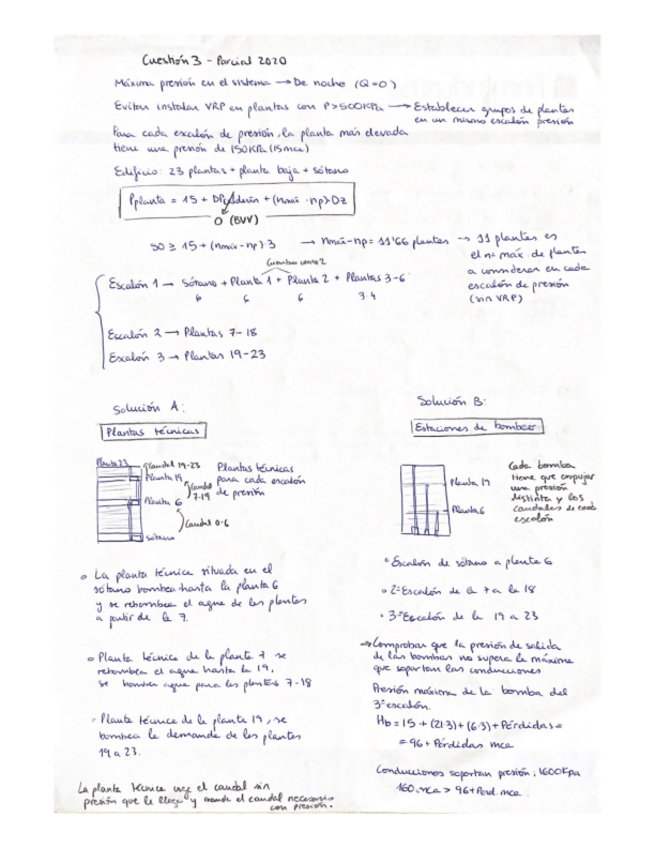 Cuestión 3 - Parcial 2020
Máxima presión en el sistema → De noche (Q=0)
Evitar instalar VRP en plantas con P>500KPa → Establecer grupos de plantas
en un mismo escalón presión
Para cada escalón de presión, la planta más elevada
tiene una presión de 150KPa (15mca)
Edificio: 23 plantas + planta baja + sótano
Pplanta = 15 + DP + (nmáx - np)·Dz
0 (BVV)
50 ≥ 15 + (nmáx-np)·3 → nmáx-np = 11'66 plantas → 11 plantas es
el nº máx. de plantas
a considerar en cada
escalón de presión
(sin VRP)
Cuentan como 2
Escalón 1 → Sótano + Planta 1 + Planta 2 + Plantas 3-6
6 6 6 3·4
Escalón 2 → Plantas 7-18
Escalón 3 → Plantas 19-23
Solución A:
Plantas técnicas
Planta 23
Caudal 19-23
Planta 19
Caudal
7-19
Planta 6
Caudal 0-6
Sótano
Plantas técnicas
para cada escalón
de presión
o La planta técnica situada en el
sótano bombea hasta la planta 6
y se rebombea el agua de las plantas
a partir de la 7.
o Planta técnica de la planta 7 se
rebombea el agua hasta la 19,
se bombea agua para las plantas 7-18
· Planta técnica de la planta 19, se
bombea la demanda de las plantas
19 a 23.
La planta técnica coge el caudal sin
presión que le llega y manda el caudal necesario
con presión.
Solución B:
Estaciones de bombeo
Planta 19
Planta 6
Cada bomba
tiene que empujar
una presión
distinta y los
caudales de cada
escalón
° Escalón de sótano a planta 6
o 2º Escalón de la 7 a la 18
· 3º Escalón de la 19 a 23
→ Comprobar que la presión de salida
de las bombas no supera la máxima
que soportan las conducciones
Presión máxima de la bomba del
3º escalón.
Hb = 15 + (21·3) + (6·3) + Pérdidas =
= 96 + Pérdidas mca
Conducciones soportan presión: 1600KPa
160 mca > 96 + Perd. mca.